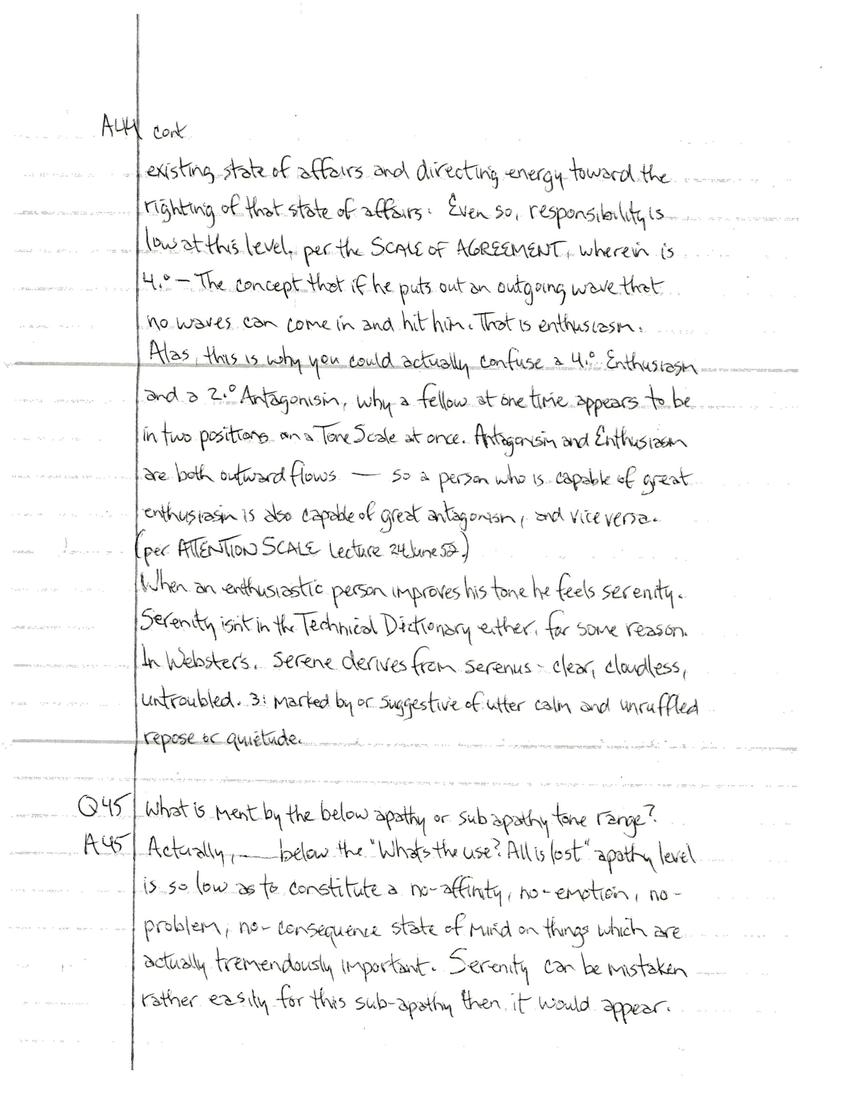 A44 cont
existing state of affairs and directing energy toward the
righting of that state of affairs. Even so, responsibility is
low at this level, per the SCALE OF AGREEMENT, wherein is
4.° — The concept that if he puts out an outgoing wave that
no waves can come in and hit him. That is enthusiasm.
Alas, this is why you could actually confuse a 4.° Enthusiasm
and a 2.° Antagonism, why a fellow at one time appears to be
in two positions on a Tone Scale at once. Antagonism and Enthusiasm
are both outward flows — so a person who is capable of great
enthusiasm is also capable of great antagonism, and vice versa.
(per ATTENTION SCALE Lecture 24 June 52.)
When an enthusiastic person improves his tone he feels serenity.
Serenity isn't in the Technical Dictionary either, for some reason.
In Webster's, Serene derives from serenus - clear, cloudless,
untroubled. 3: Marked by or suggestive of utter calm and unruffled
repose or quietude.
Q45 What is ment by the below apathy or sub apathy tone range?
A45 Actually, — below the "What's the use? All is lost" apathy level
is so low as to constitute a no-affinity, no-emotion, no-
problem, no-consequence state of mind on things which are
actually tremendously important. Serenity can be mistaken
rather easily for this sub-apathy then, it would appear.